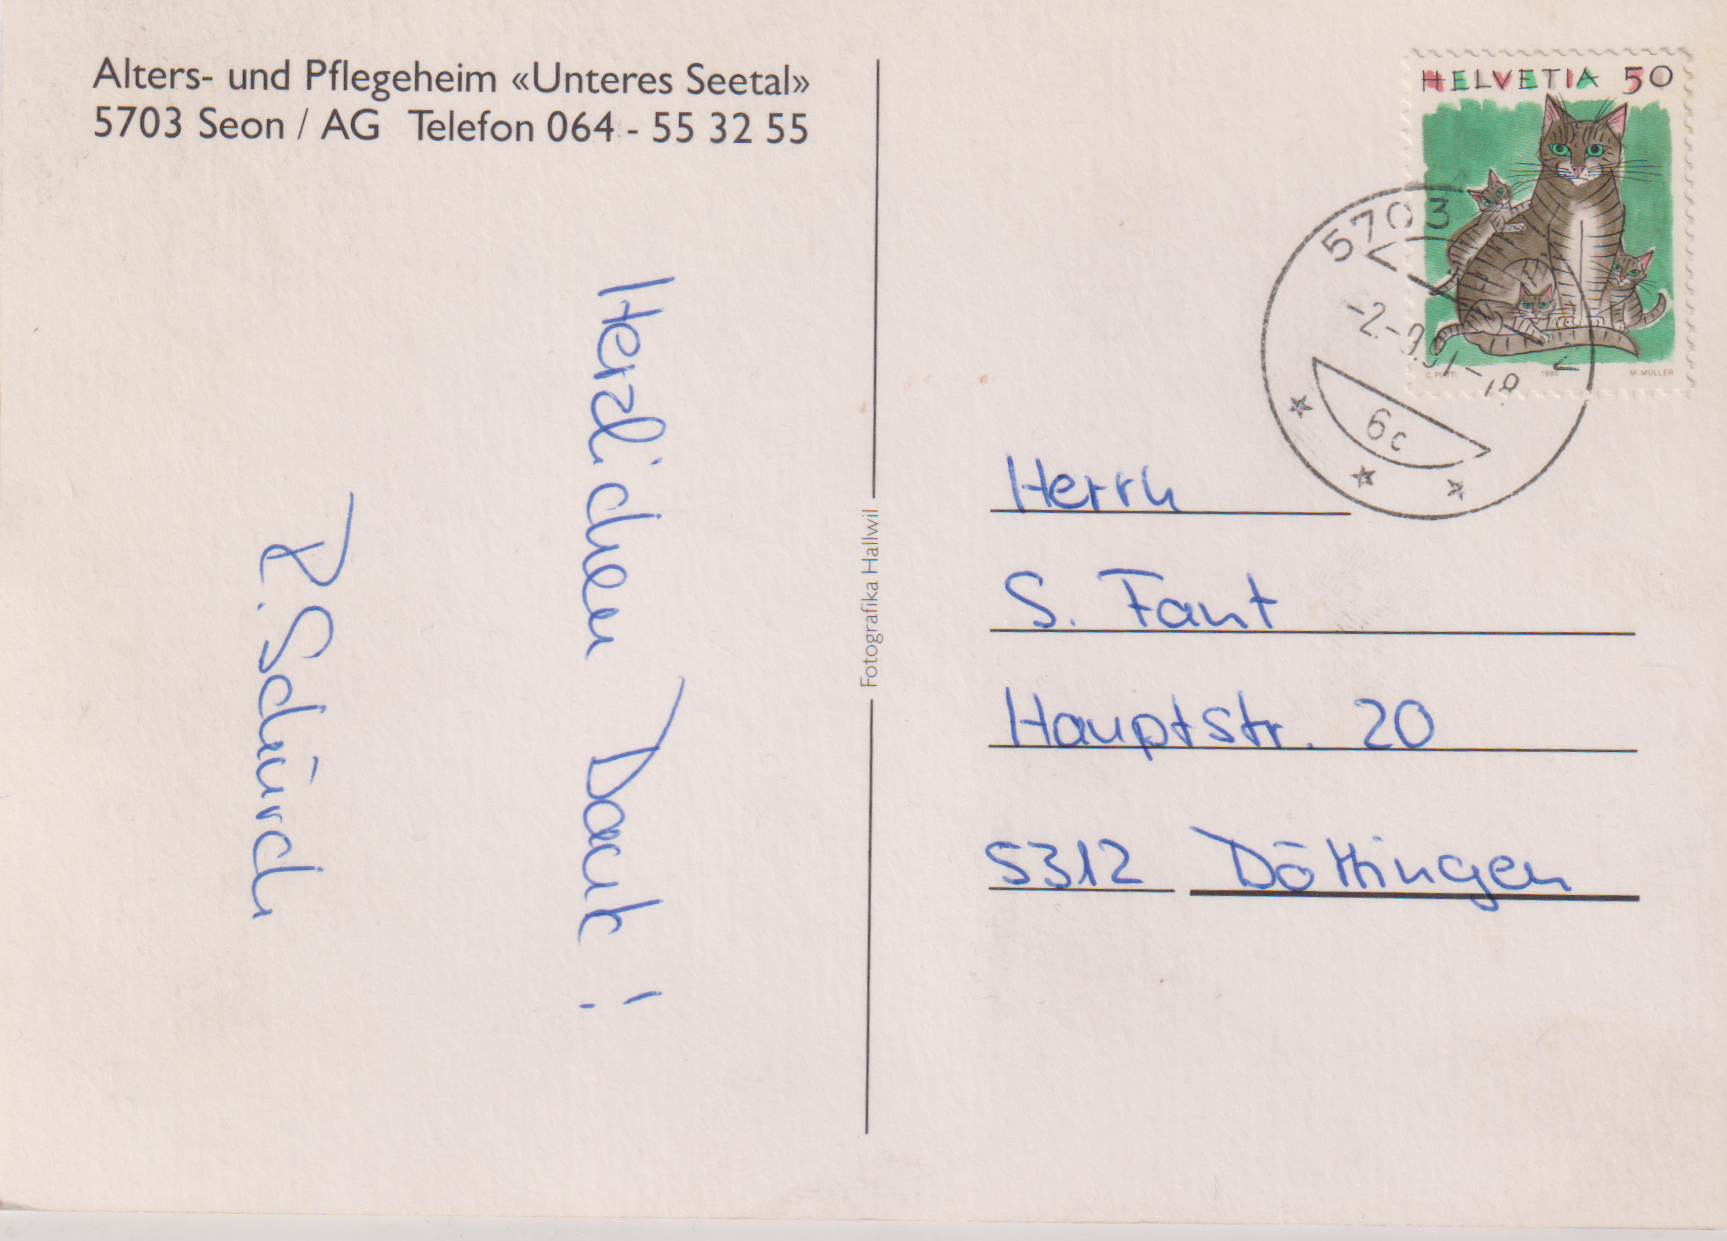 Alters- und Pflegeheim «Unteres Seetal»
5703 Seon / AG Telefon 064 - 55 32 55
Herzlichen Dank!
P. Schürch
Fotografika Hallwil
HELVETIA 50
1990 M. MÜLLER
5703
6c
Herrn
S. Fant
Hauptstr. 20
5312 Döttingen